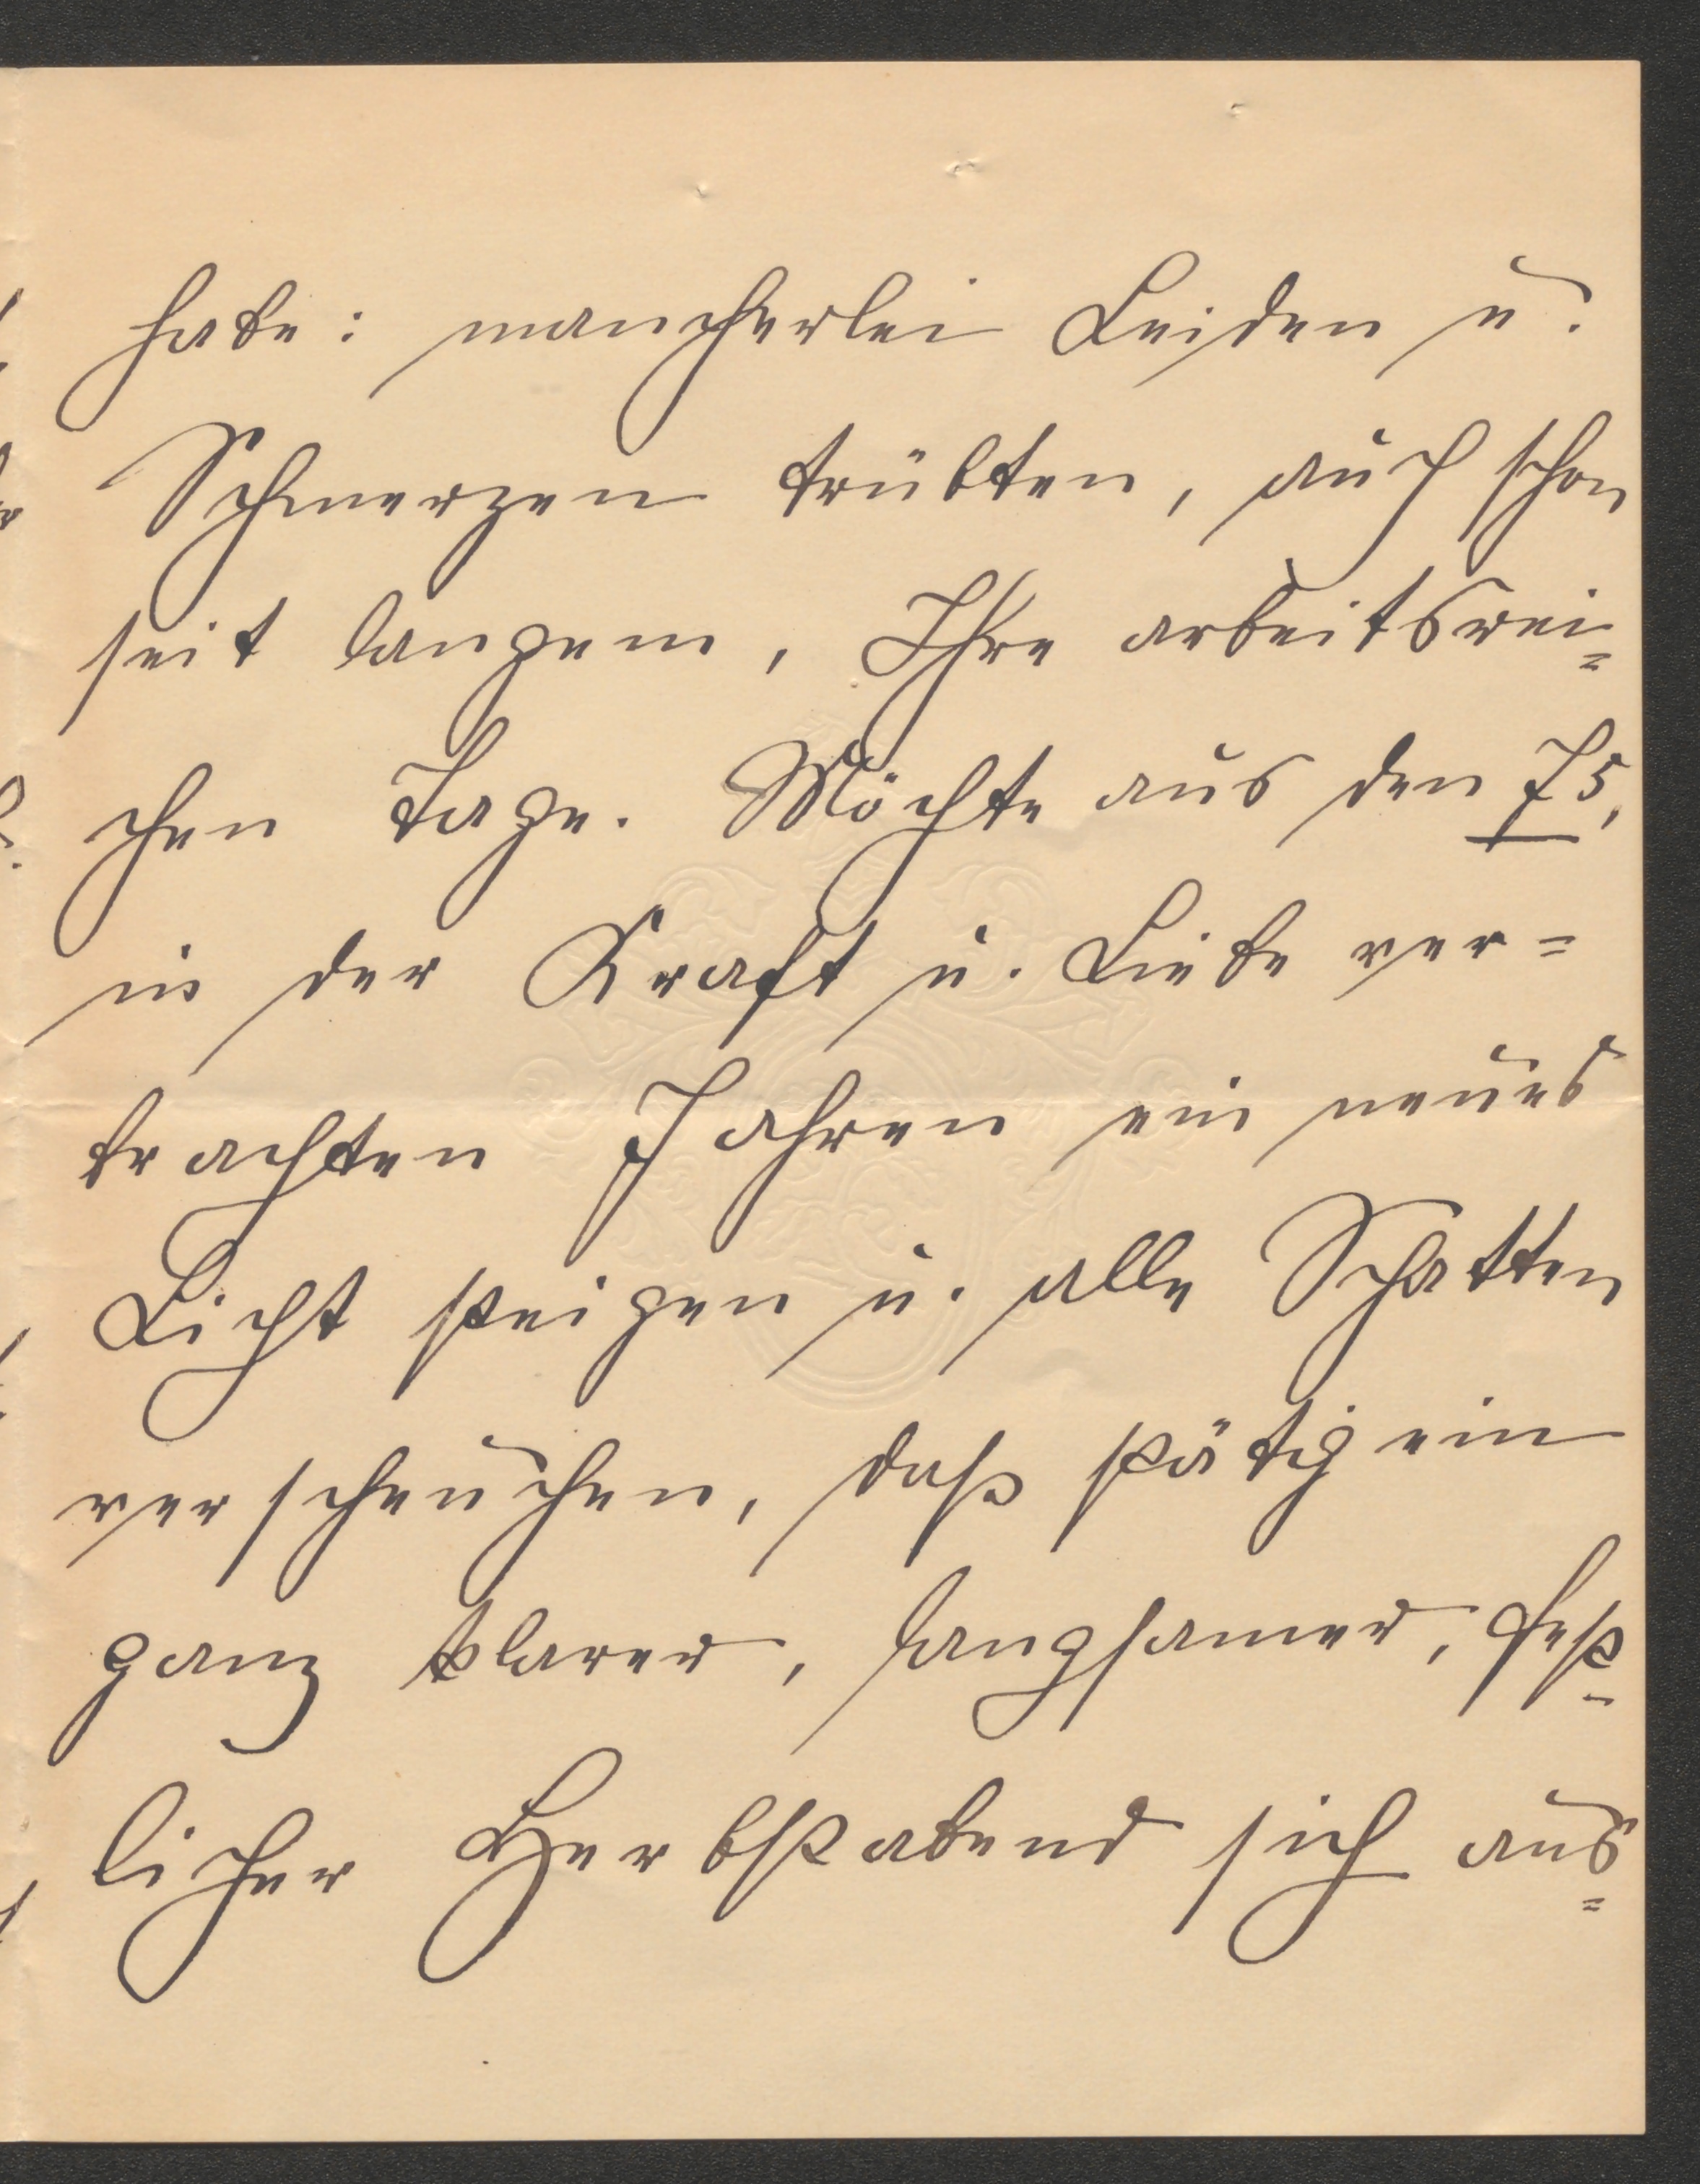 habe: mancherlei Leiden u.
Schmerzen trübten, auch schon
seit langem, Ihre arbeitsrei=
chen Tage. Möchte aus den 75,
in der Kraft u. Liebe ver=
brachten Jahren ein neues
Licht steigen u. alle Schatten
verscheuchen, daß stätig ein
ganz klarer, langsamer, fest-
licher Herbstabend sich aus=